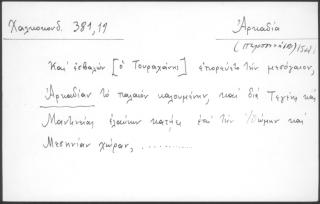 Χαλκοκονδ. 381,19
Ἀρκαδία
(περιοχὴ)
Καὶ ἐσβαλὼν [ὁ Τουραχάνης] ἐπορεύετο τὴν μεσόγαιον,
Ἀρκαδίαν τὸ παλαιὸν καλουμένην, καὶ διὰ Τεγέης καὶ
Μαντινείας ἐλαύνων κατῆγε ἐπὶ τὴν Ἰθώμην καὶ
Μεσηνίαν χώραν, ............